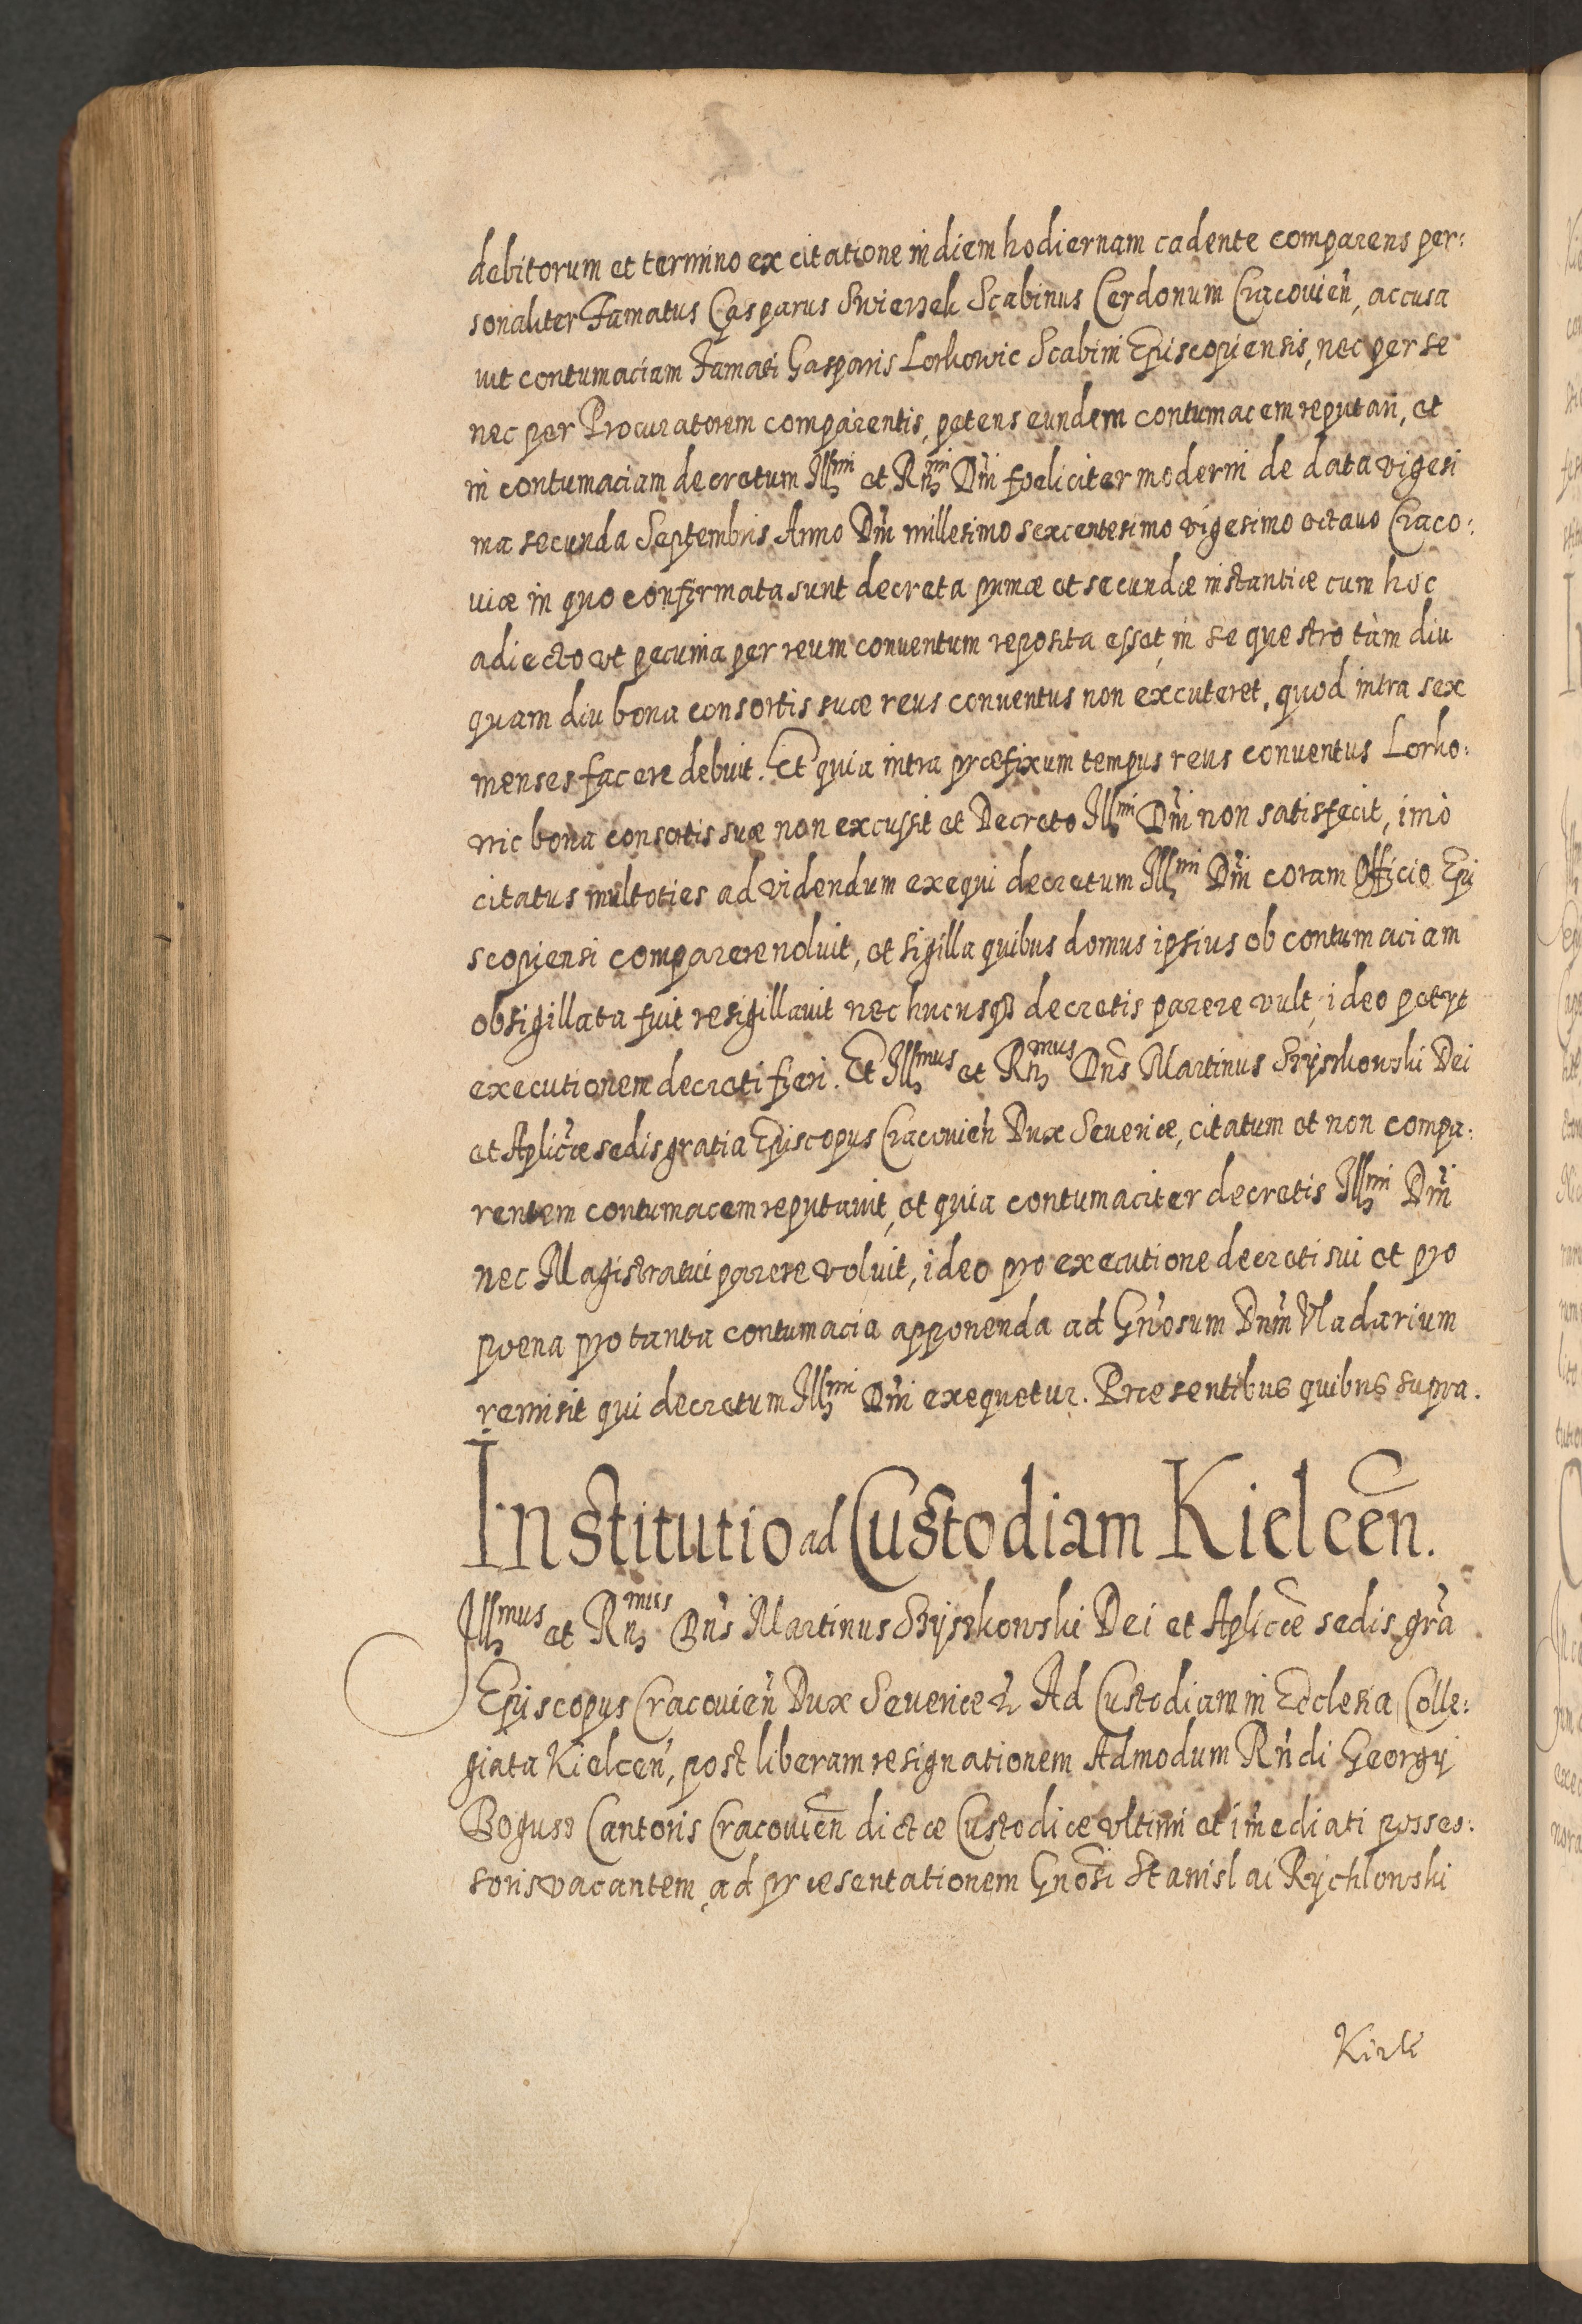 debitorum et termino ex citatione in diem hodiernam cadente comparens per:
sonaliter Famatus Casparus Swierzek Scabinus Cerdonum Cracovień, accusa
uit contumaciam Famati Gasparis Lorkowic Scabini Episcopiensis, nec per se
nec per Procuratorem comparentis, petens eundem contumacem reputari, et
in contumaciam decretum Illmi et Rmi Dńi foeliciter moderni de data vigesi
ma secunda Septembris Anno Dńi millesimo sexcentesimo vigesimo octauo Craco:
uiæ in quo confirmata sunt decreta primæ et secundæ instantiæ cum hoc
adiecto vt pecunia per reum conuentum reposita esset in sequestro tàm diu
quam diu bona consortis suæ reus conuentus non excuteret, quod intra sex
menses facere debuit. Et quia intra præfixum tempus reus conuentus Lorko:
wic bona consortis suæ non excussit et Decreto Illmi Dńi non satisfecit, imò
citatus multoties ad videndum exequi decretum Illmi Dńi coram Officio Epi
scopiensi comparere noluit, et sigilla quibus domus ipsius ob contumaciam
obsigillata fuit resigillauit nec hucusq decretis parere vult, ideo petyt
executionem decreti fieri. Et Illmus et Rmus Dńs Martinus Szyszkowski Dei
et Aplicæ sedis gratia Episcopus Cracouień Dux Seueriæ, citatum et non compa:
rentem contumacem reputauit, et quia contumaciter decretis Illmi Dńi
nec Magistratui parere voluit, ideo pro executione decreti sui et pro
poena pro tanta contumacia apponenda ad Gńosum Dnm Vladarium
remisit qui decretum Illmi Dńi exequetur. Præsentibus quibus supra.
Institutio ad Custodiam Kielceń.
Illmus et Rmus Dńs Martinus Szyszkowski Dei et Aplicæ sedis gra
Episcopus Cracouień Dux Seueriæ & Ad Custodiam in Ecclesia Colle:
giata Kielceń, post liberam resignationem Admodum Rńdi Georgij
Boguss Cantoris Cracouień dictæ Custodiæ vltimi et imediati posses:
soris vacantem, ad præsentationem Gnosi Stanislai Rychlowski